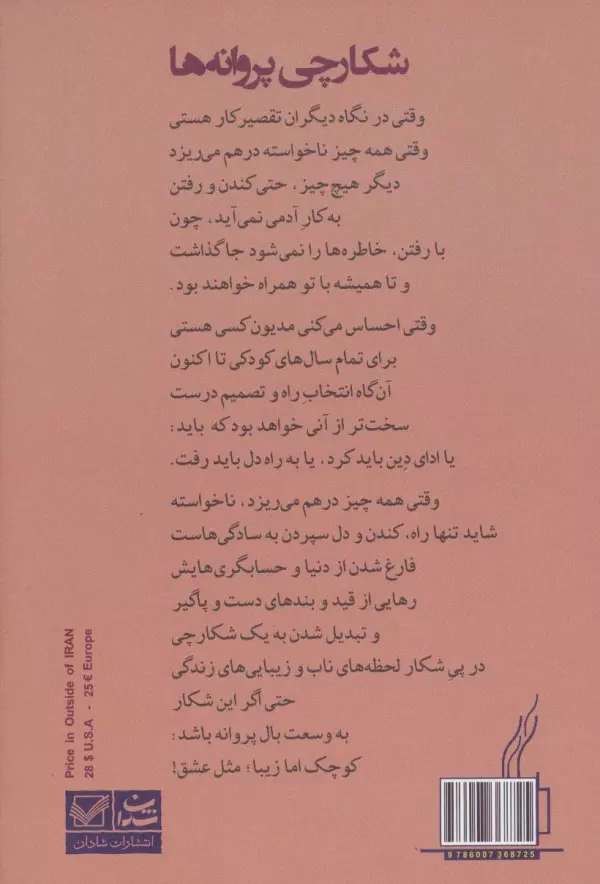 شکارچی پروانه‌ها
وقتی در نگاه دیگران تقصیرکار هستی
وقتی همه چیز ناخواسته درهم می‌ریزد
دیگر هیچ چیز، حتی کندن و رفتن
به کارِ آدمی نمی‌آید، چون
با رفتن، خاطره‌ها را نمی‌شود جا گذاشت
و تا همیشه با تو همراه خواهند بود.
وقتی احساس می‌کنی مدیون کسی هستی
برای تمام سال‌های کودکی تا اکنون
آن‌گاه انتخابِ راه و تصمیم درست
سخت‌تر از آنی خواهد بود که باید:
یا ادای دِین باید کرد، یا به راه دل باید رفت.
وقتی همه چیز درهم می‌ریزد، ناخواسته
شاید تنها راه، کندن و دل سپردن به سادگی‌هاست
فارغ شدن از دنیا و حسابگری‌هایش
رهایی از قید و بندهای دست و پاگیر
و تبدیل شدن به یک شکارچی
در پیِ شکار لحظه‌های ناب و زیبایی‌های زندگی
حتی اگر این شکار
به وسعت بال پروانه باشد:
کوچک اما زیبا؛ مثل عشق!
Price in Outside of IRAN
28 $ U.S.A - 25 € Europe
شادان
انتشارات شادان
9 786007 368725